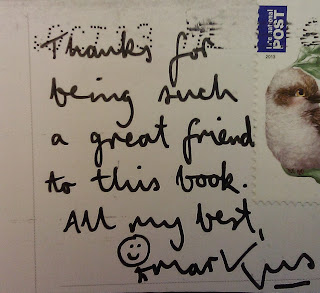 Thanks for
being such
a great friend
to this book.
All my best,
Markus
International
POST
2013